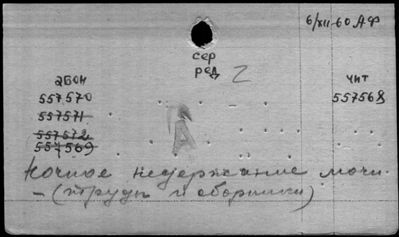 6/XII-60 АФ
сер
ред
2
абон
чит
557570
557568
557571
557572
557569
Ночное недержание мочи.
- (труды и сборники)